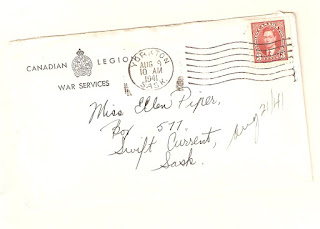 CANADIAN LEGION
WAR SERVICES
YORKTON
AUG 4
10 AM
1941
SASK.
CANADA
Miss Ellen Piper,
Box 577.
Swift Current,
Sask.
Aug 21/41